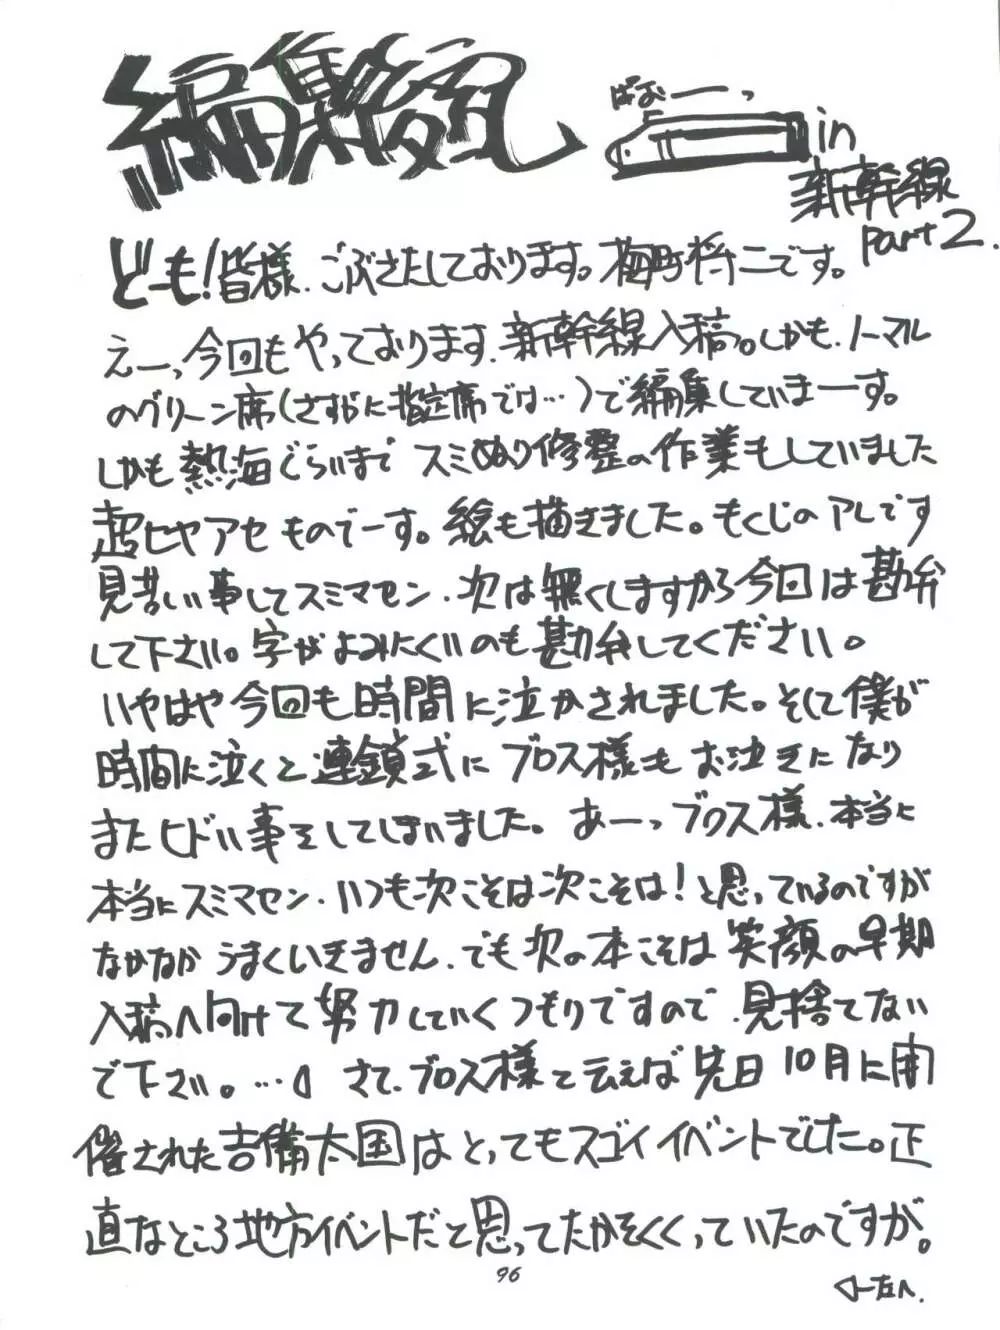 編集後記
ぱおーーっ
in
新幹線
part2.
どーも!皆様、ごぶさたしております。梅町将二です。
えーっ今回もやっております、新幹線入稿。しかも、ノーマル
のグリーン席(さすがに指定席では…)で編集していまーーす。
しかも熱海ぐらいまでスミぬり修整の作業もしていました
超ヒヤアセものでーす。絵も描きました。もくじのアレです
見苦しい事してスミマセン、次は無くしますから今回は勘弁
して下さい。字がよみにくいのも勘弁してください。
いやはや今回も時間に泣かされました。そして僕が
時間に泣くと連鎖式にブロス様もお泣きになり
またヒドい事をしてしまいました。あーっブロス様、本当に
本当にスミマセン、いつも次こそは次こそは!と思っているのですが
なかなかうまくいきません、でも次の本こそは笑顔の早期
入稿へ向けて努力していくつもりですので、見捨てない
で下さい。…。さて、ブロス様と云えば先日10月に開
催された吉備太国はとってもスゴイイベントでした。正
直なところ地方イベントだと思ってたかをくくっていたのですが。
96
◁一左へ.